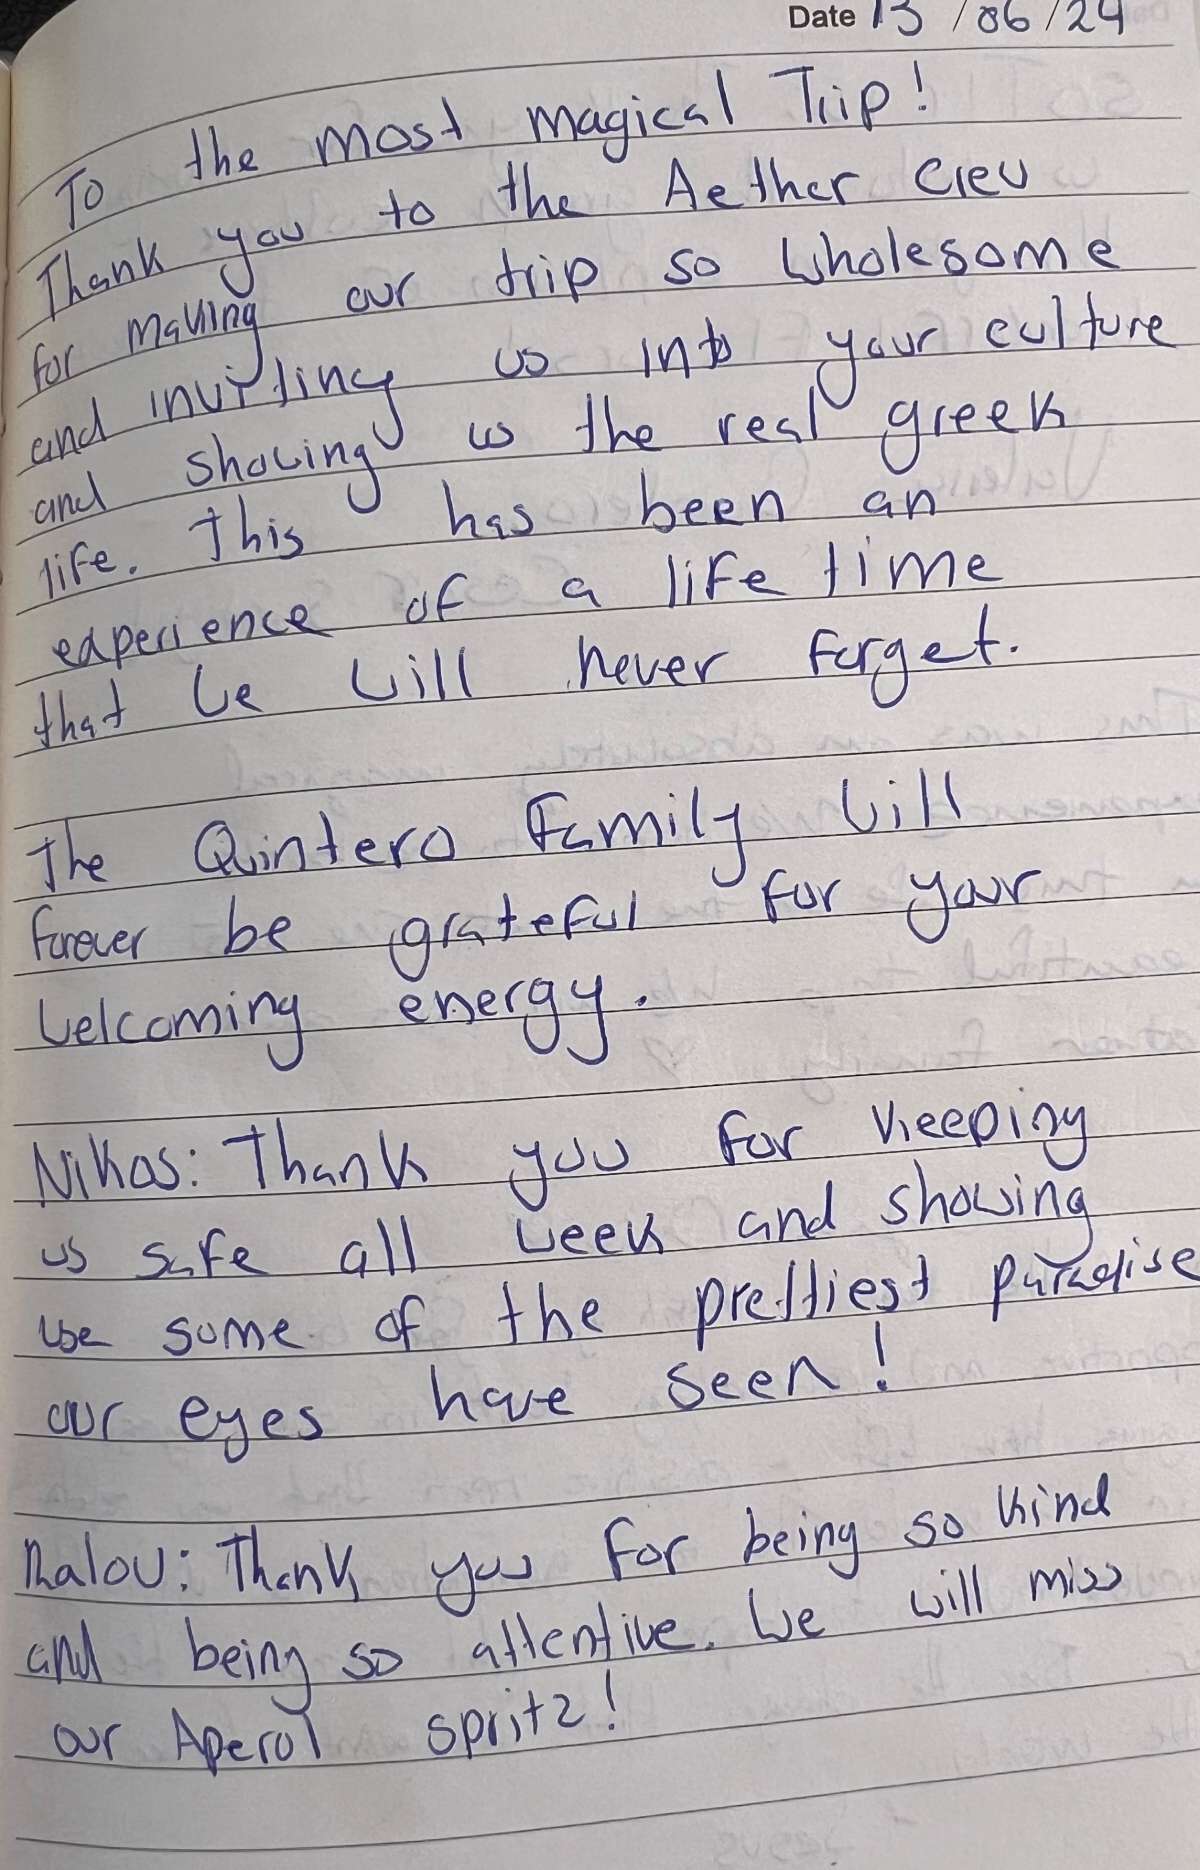 Date 13/06/24
To the most magical Trip!
Thank you to the Aether crew
for making our trip so wholesome
and inviting us into your culture
and showing us the real greek
life. This has been an
experience of a life time
that we will never forget.
The Quintero Family will
forever be grateful for your
welcoming energy.
Nikos: Thank you for keeping
us safe all week and showing
use some of the prettiest paradise
our eyes have seen!
Malou: Thank you for being so kind
and being so attentive. We will miss
our Aperol spritz!